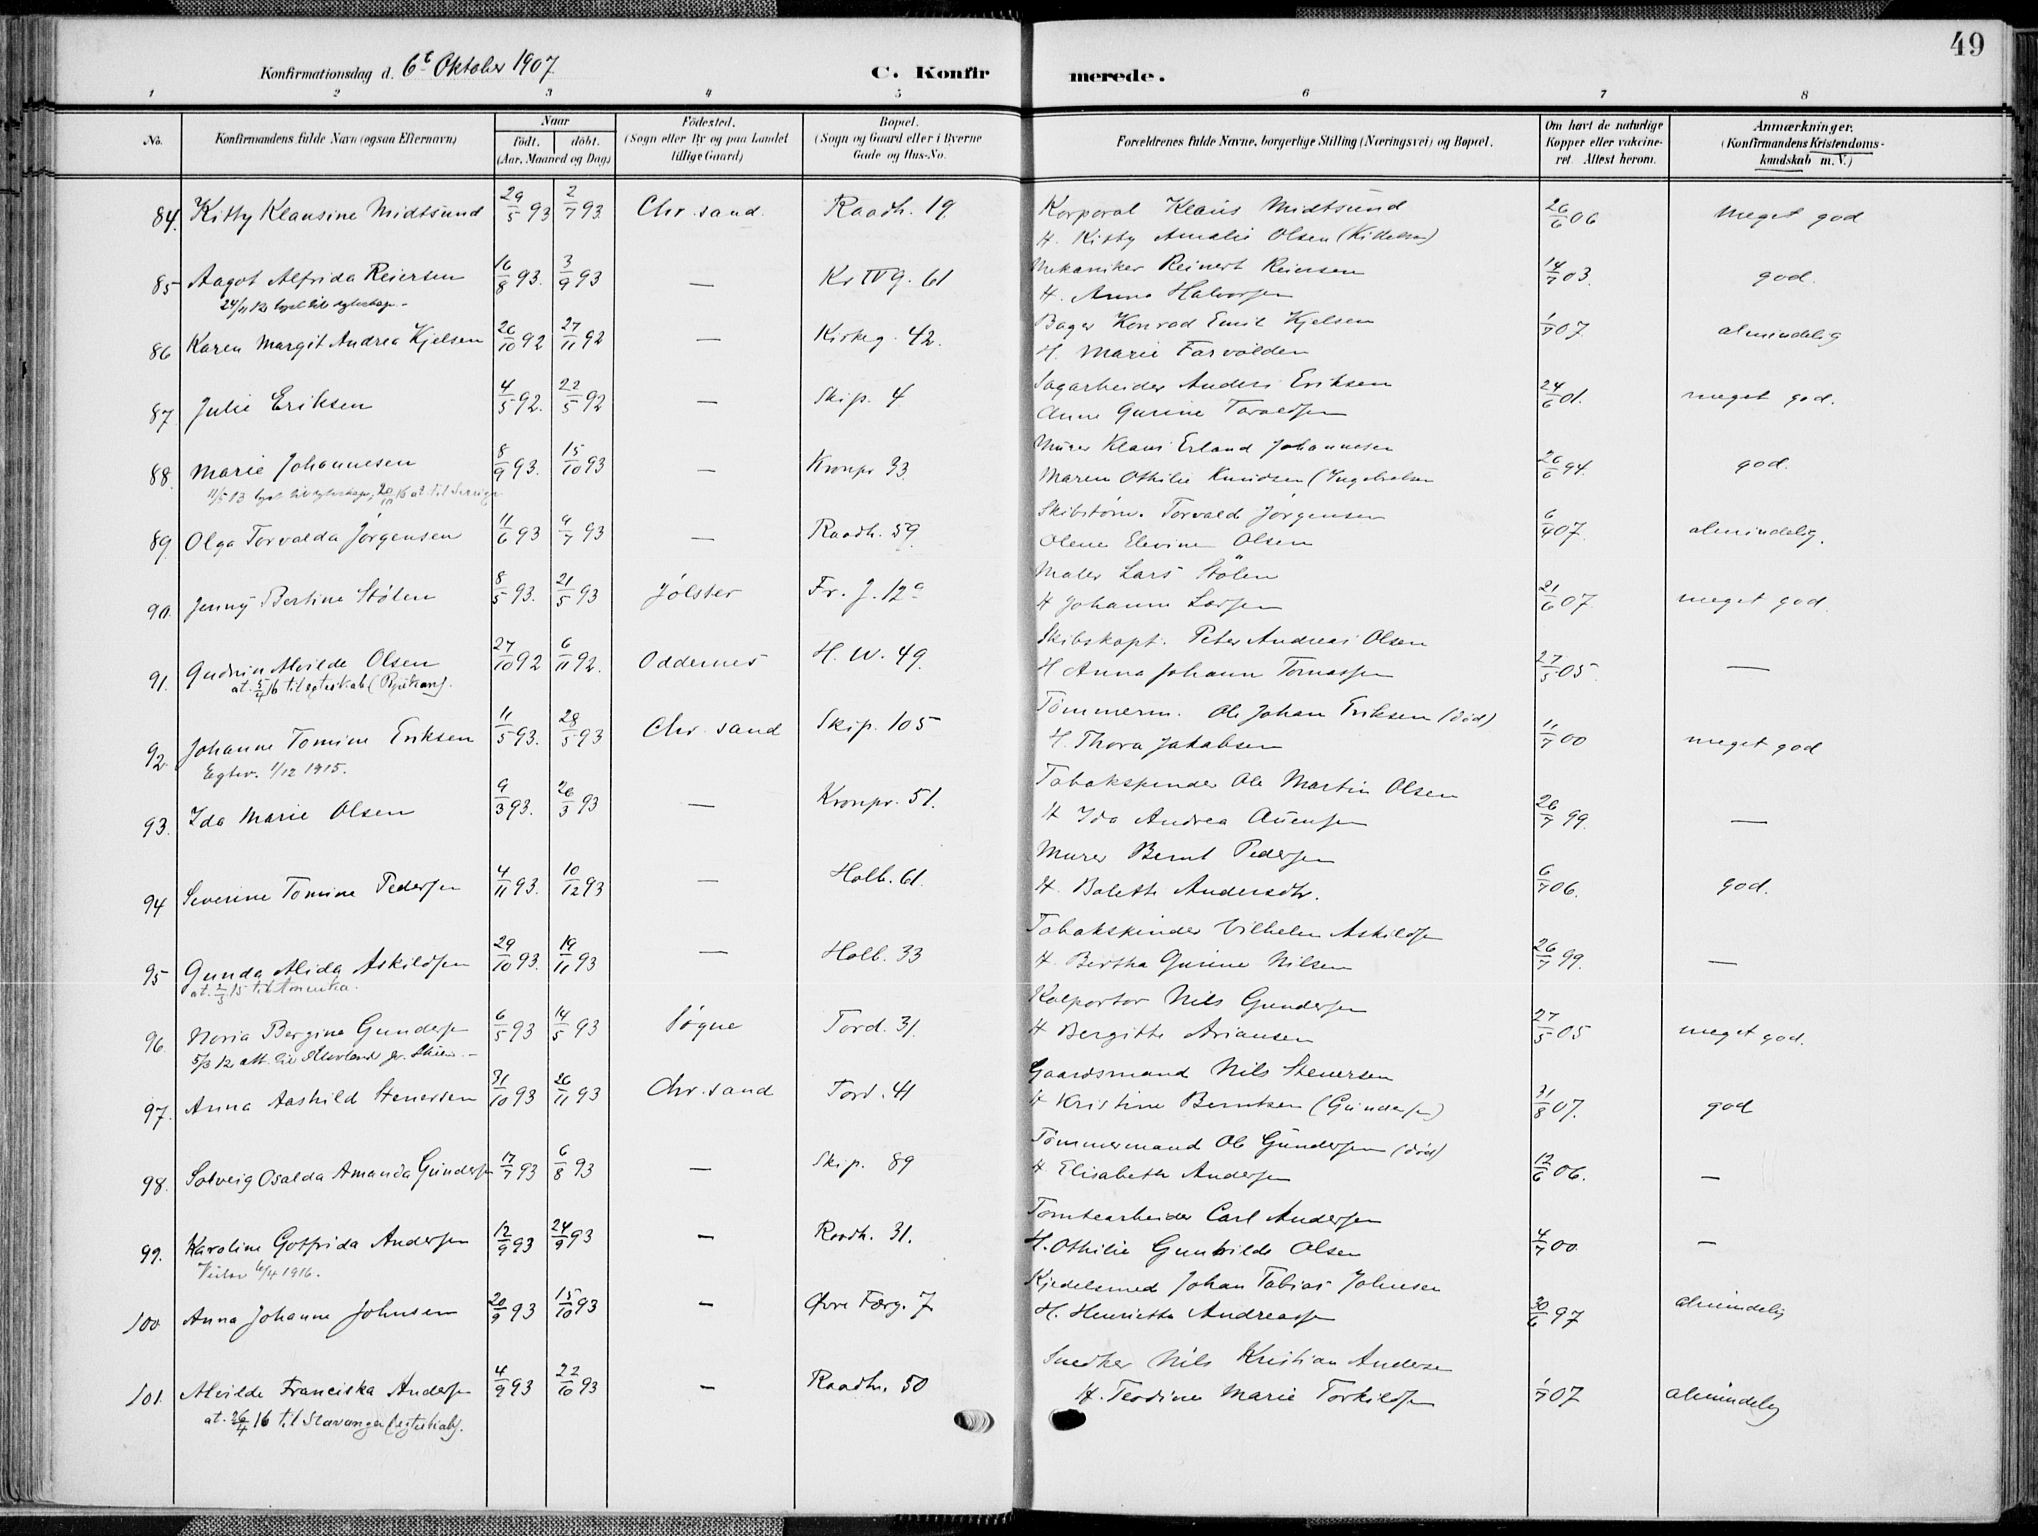 49
Konfirmationsdag d. 6t Oktober 1907 C. Konfirmerede.
1 2 3 4 5 6 7 8
No. Konfirmandens fulde Navn (ogsaa Efternavn) Naar født. døbt. (Aar, Maaned og Dag) Fødested. (Sogn eller By og paa Landet tillige Gaard) Bopæl. (Sogn og Gaard eller i Byerne Gade og Hus-No. Forældrenes fulde Navne, borgerlige Stilling (Næringsvei) og Bopæl. Om havt de naturlige Kopper eller vakcineret. Attest herom. Anmærkninger. (Konfirmandens Kristendomskundskab m. V.)
84. Kitty Klausine Midtsund 29/5 93 2/7 93 Chr.sand. Raadh. 19 Korporal Klaus Midtsund 26/6 06 meget god
H. Kitty Amalie Olsen (Kittelsen)
85 Aagot Alfrida Reiersen 16/8 93. 3/9 93 — Kr IV g. 61 Mekaniker Reinert Reiersen 14/7 03. god.
H. Anna Halvorsen
86 Karen Margit Andrea Kjelsen 26/10 92 27/11 92 — Kirkeg. 42. Bager Konrad Emil Kjelsen 1/7 07. almindelig
H. Marie Farvolden
87. Julie Eriksen 4/5 92. 22/5 92 — Skip. 4 Sagarbeider Anders Eriksen 24/6 01. meget god.
Anne Gurine Torvaldsen
88. Marie Johannesen 8/9 93. 15/10 93 — Kronpr 33 Murer Klaus Erland Johannesen 26/6 94. god.
Maren Othilie Knudsen (Ingebretsen
89. Olga Torvalda Jørgensen 11/6 93 9/7 93 — Raadh. 59. Skibstøm. Torvald Jørgensen 6/4 07. almindelig.
Olene Elevine Olsen
90. Jenny Bertine Stølen 8/5 93. 21/5 93 Jølster Fr. J. 12a Maler Lars Stølen 21/6 07. meget god.
H Johanne Larsen
91. Gudrun Alvilde Olsen 27/10 92 6/11 92. Oddernes H. W. 49. Skibskapt. Peter Andreas Olsen 27/5 05. —
at. 5/4 16 til egteskab (Rjukan). H Anna Johanne Tomassen
92. Johanne Tomine Eriksen 11/5 93. 28/5 93 Chr.sand Skip. 105 Tømmerm. Ole Johan Eriksen (død) 11/7 00 meget god
Egtev. 1/12 1915. H. Thora Jakobsen
93. Ida Marie Olsen 9/3 93. 26/3 93 — Kronpr. 51. Tobakspinder Ole Martin Olsen 26/7 99. —
H Ida Andrea Auensen
94 Severine Tomine Pedersen 4/11 93. 10/12 93 — Holb. 61. Murer Bernt Pedersen 6/7 06. god.
H. Bolette Andersdtr.
95 Gunda Alida Askildsen 29/10 93. 19/11 93 — Holb. 33 Tobakspinder Vilhelm Askildsen 26/7 99. —
at. 2/3 15 til Amerika. H. Bertha Gurine Nilsen
96. Noria Bergine Gundersen 6/5 93 14/5 93 Søgne Tord. 31. Kolportør Nils Gundersen 27/5 05 meget god.
H Bergitte Ariansen
97. Anna Aashild Stenersen 31/10 93 26/11 93 Chr.sand Tord. 41 Gaardsmand Nils Stenersen 31/8 07. god
H Kristine Berntsen (Gundersen)
98. Solveig Osalda Amanda Gundersen 17/7 93 6/8 93 — Skip. 89 Tømmermand Ole Gundersen (død) 12/6 06. —
H. Elisabeth Andersen
99. Karoline Gotfrida Andersen 12/9 93 24/9 93 — Raadh. 31. Tomtearbeider Carl Andersen 4/7 00. —
6/4 1916. H. Othilie Gunhilde Olsen
100 Anna Johanne Johnsen 20/9 93 15/10 93 — Øvre Færg. 7 Kjedelsmed Johan Tobias Johnsen 30/6 97 almindelig
H. Henriette Andreassen
101. Alvilde Franciska Andersen 4/9 93 22/10 93 — Raadh. 50 Snedker Nils Kristian Andersen 1/7 07 almindelig
at. 26/4 16 til Stavanger (egteskab). H. Teodine Marie Torkildsen